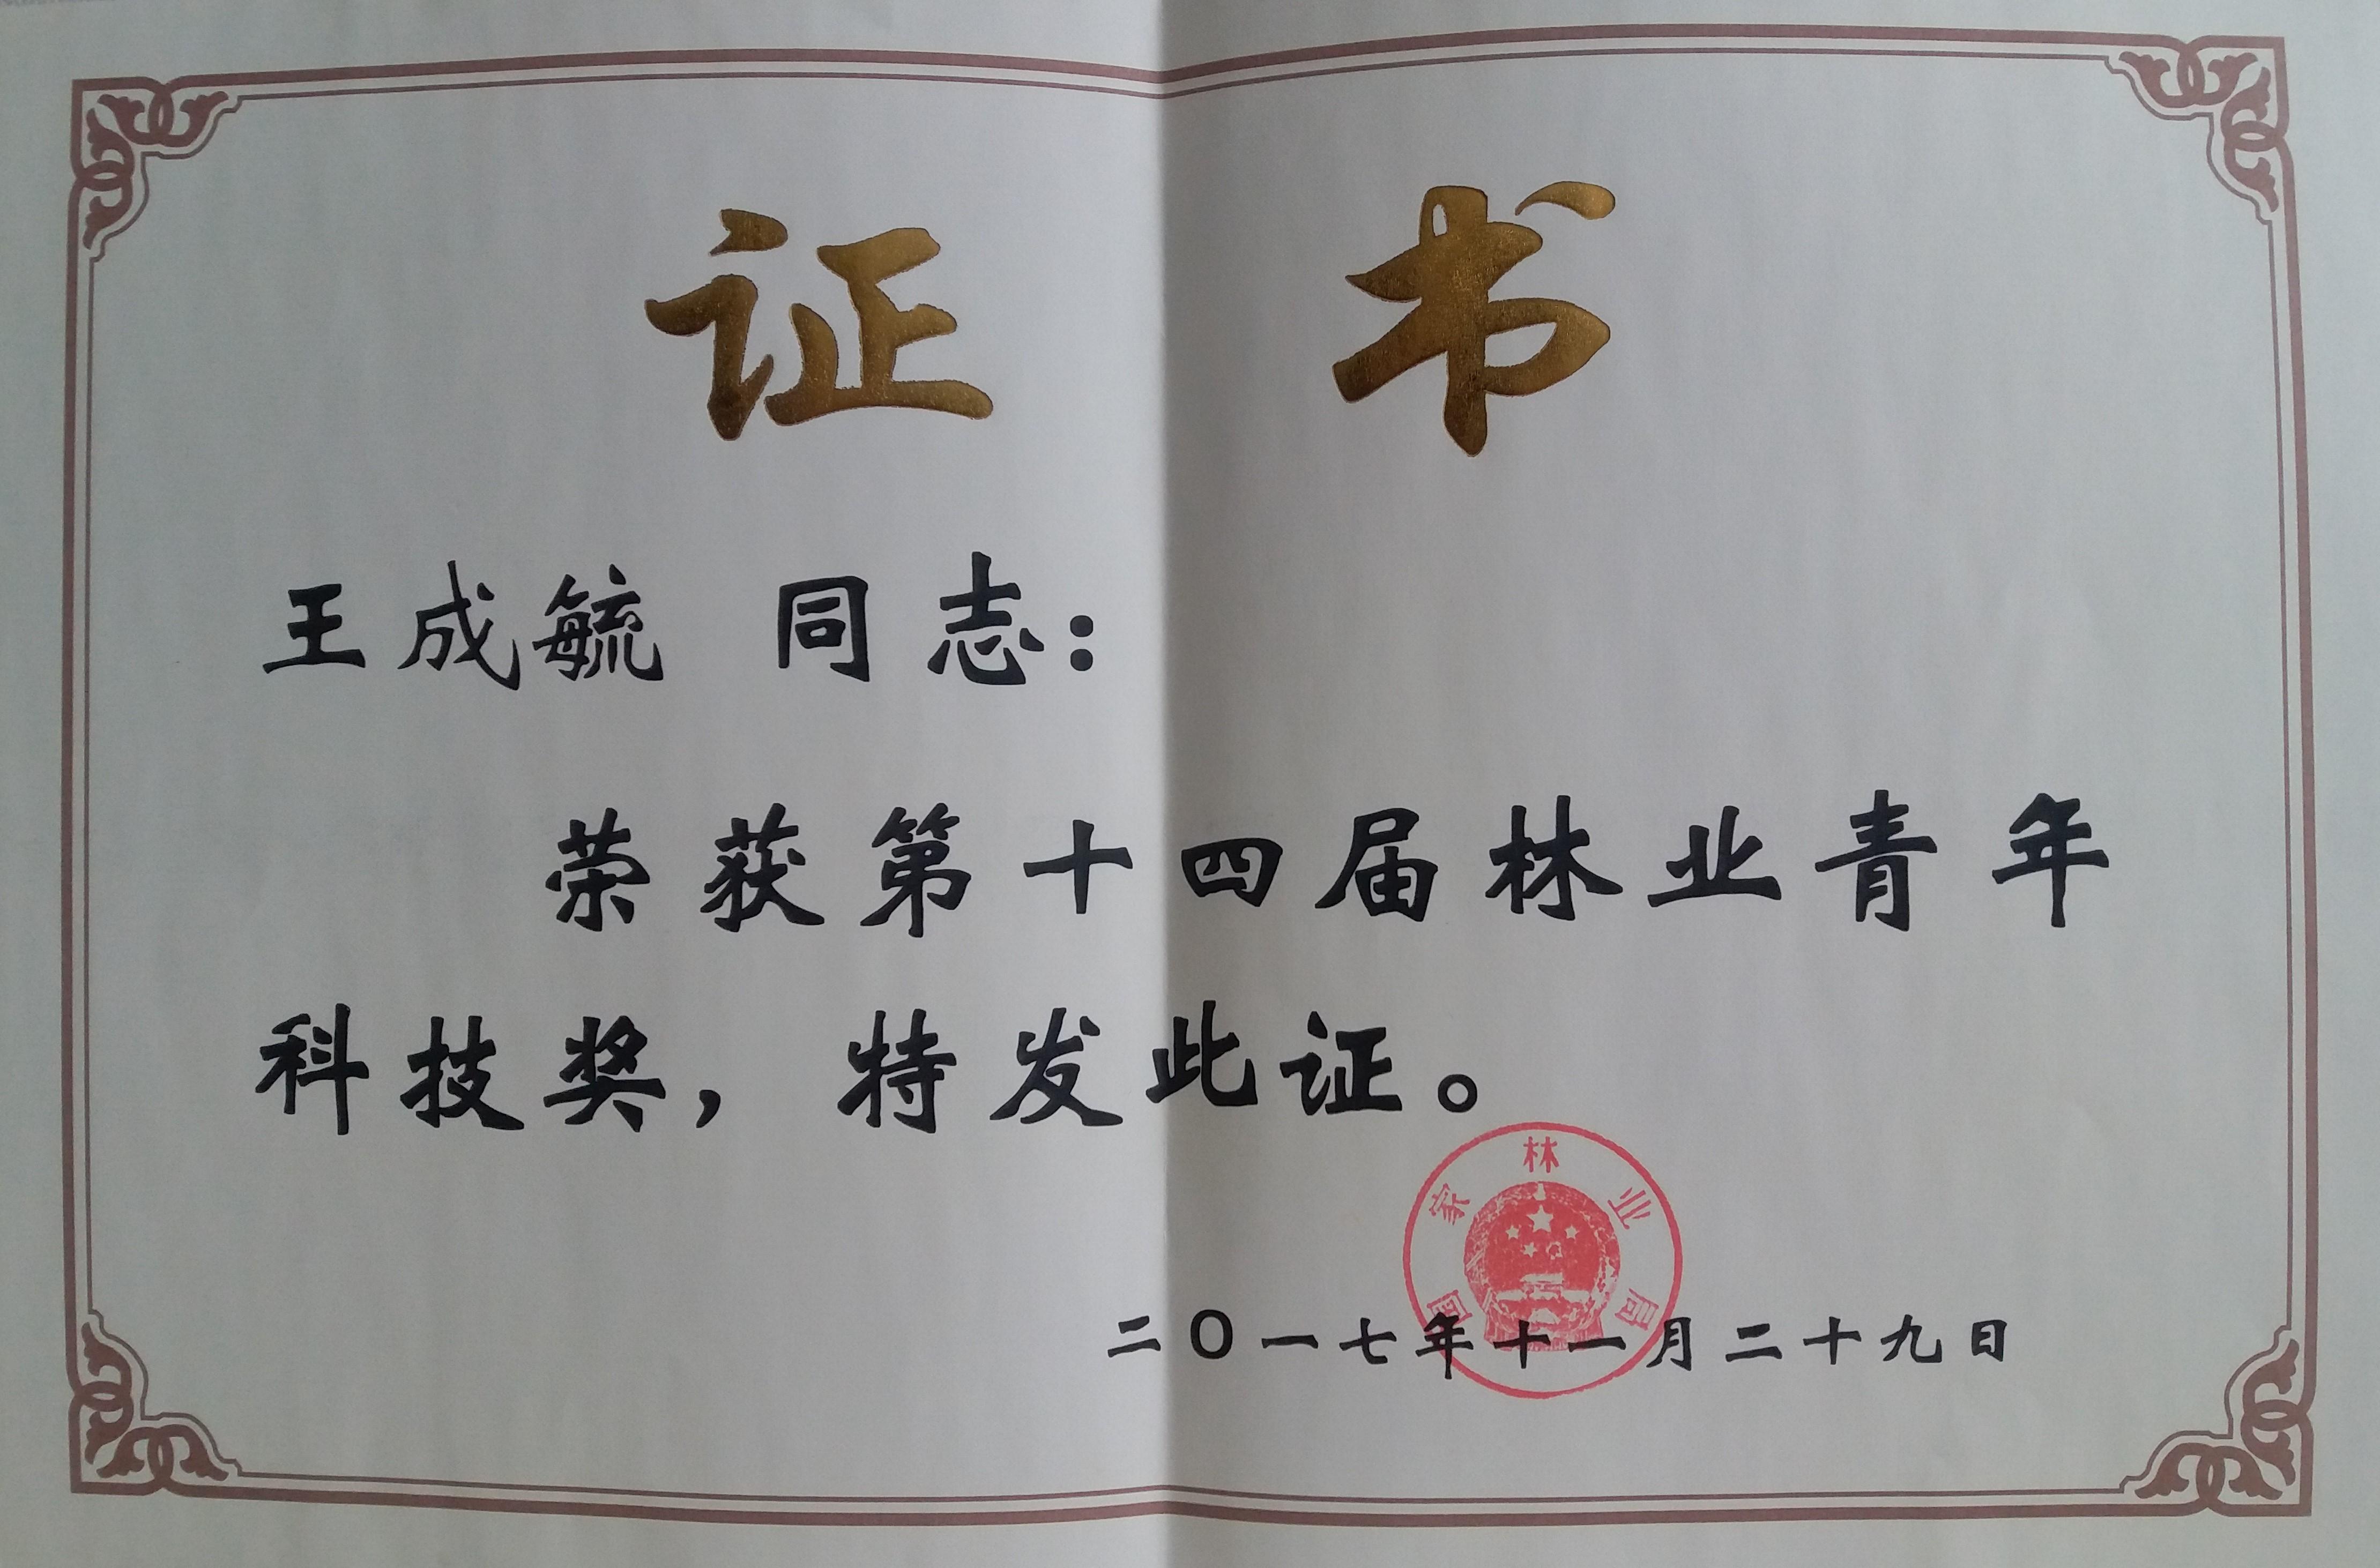 证书
王成毓 同志：
荣获第十四届林业青年
科技奖，特发此证。
国家林业局
二〇一七年十一月二十九日